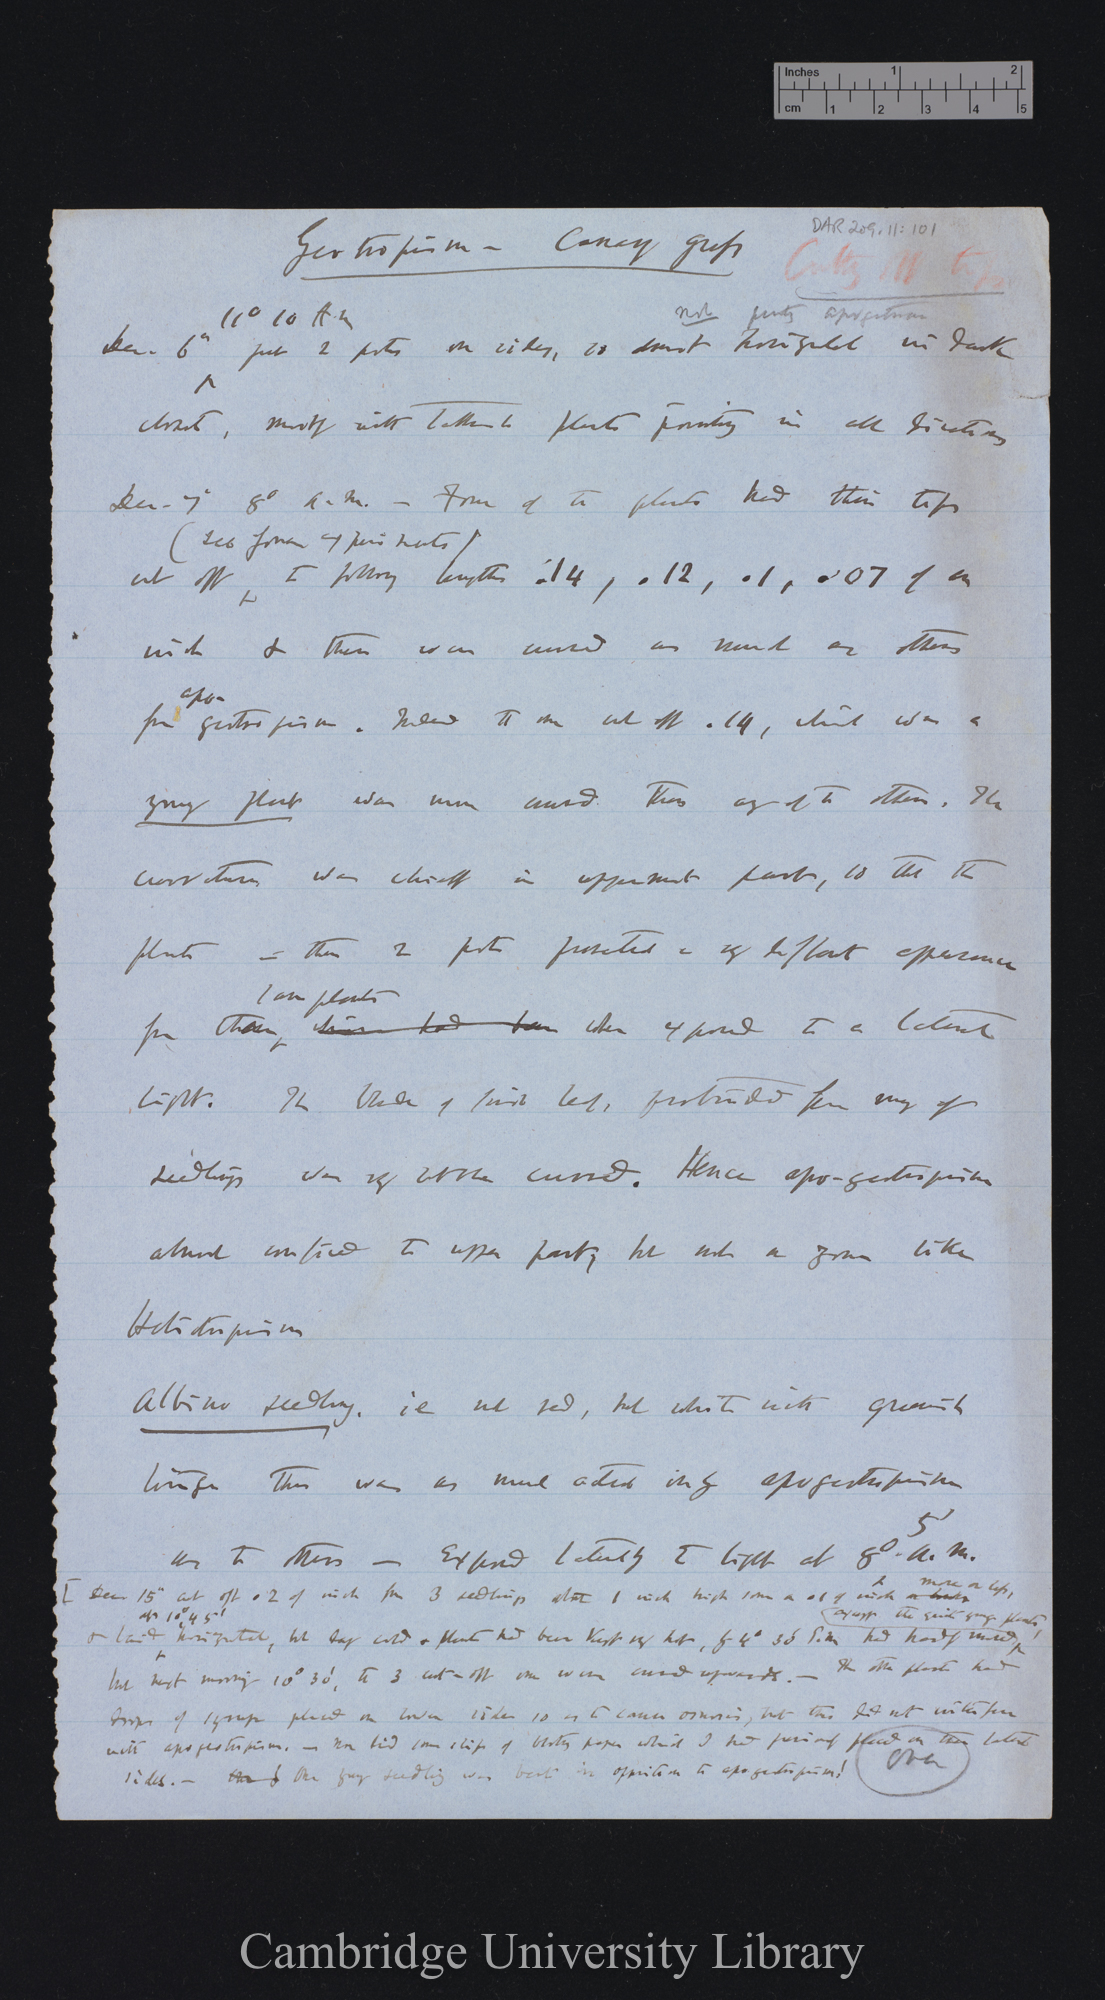 Inches 1 2
cm 1 2 3 4 5
DAR 209.11:101
Geotropism — Canary grass
Cutting off tips
not apogeotropism
11° 10' A.m
Dec. 6th put 2 pots on sides, so almost horizontal in dark
closet, mostly with tallest plants pointing in all directions
Dec. 7th 8° a.m. — Four of the plants had their tips
(see former experiments)
cut off, to following lengths .14, .12, .1, .07 of an
inch & these were curved as much as others
apo-
from geotropism. Indeed the one cut off .14, which was a
young plant was more curved than any of the others. The
curvature was chiefly in uppermost part, so that the
plants in these 2 pots presented a very different appearance
same plants
from them, when exposed to a lateral
light. The blade of first leaf, protruded from many of
seedlings was very little curved. Hence apo-geotropism
almost confined to upper part, but not in a zone like
Heliotropism
Albino seedling. ie not red, but white with greenish
tinge this was as much acted on by apogeotropism
as the others — Exposed laterally to light at 8° 5' a.m.
[Dec 15th cut off .2 of inch from 3 seedlings about 1 inch high some a .1 of inch more or less,
at 10° 45' (except the quite young plants)
& laid horizontal, but day cold & plants had been kept very hot, by 4° 30' P.m. had hardly moved,
but next morning 10° 30', the 3 cut-off ones were curved upwards. — The other plants had
drops of syrup placed on lower sides so as to cause osmosis, but this did not interfere
with apogeotropism. — nor did some slips of blotting paper which I had previously placed on their lateral
sides. — One young seedling was bent in opposition to apogeotropism!
over
Cambridge University Library